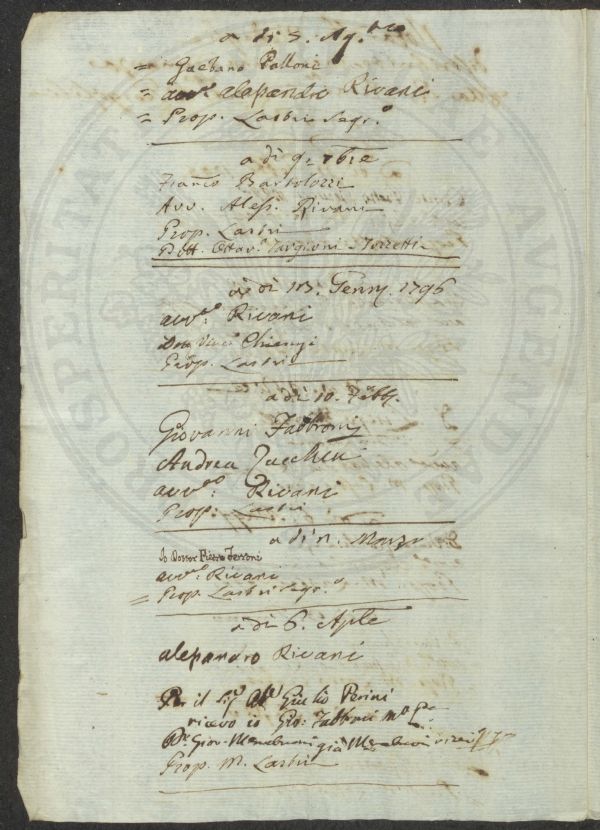 a di 5. Ag.sto
= Gaetano Palloni
= avv.o alesandro Rivani
= Prop. Lastri Segr.o
a dì 9. 7bre
Franc.o Bartolozzi
Avv. Aless. Rivani
Prop. Lastri
Dott. Ottav.o Targioni-Tozzetti
a di 13. Genn. 1796
avv.to Rivani
Don Vinc.o Chiarugi
Prop. Lastri
a di 10. Febb.
Giovanni Fabbroni
Andrea Zucchini
avv.to Rivani
Prop. Lastri
a di Marzo
Io Dottor Pietro Ferroni
avv.to Rivani
= Prop. Lastri Segr.o
a di 6. Aple
alesandro Rivani
Per il sig.r Ab.e Giulio Perini
ricevo io Gio: Fabbroni m.o p.a
Gio: Menabuoni già Menabuoni
Prop. M. Lastri
PROSPERITATI AUGENDAE